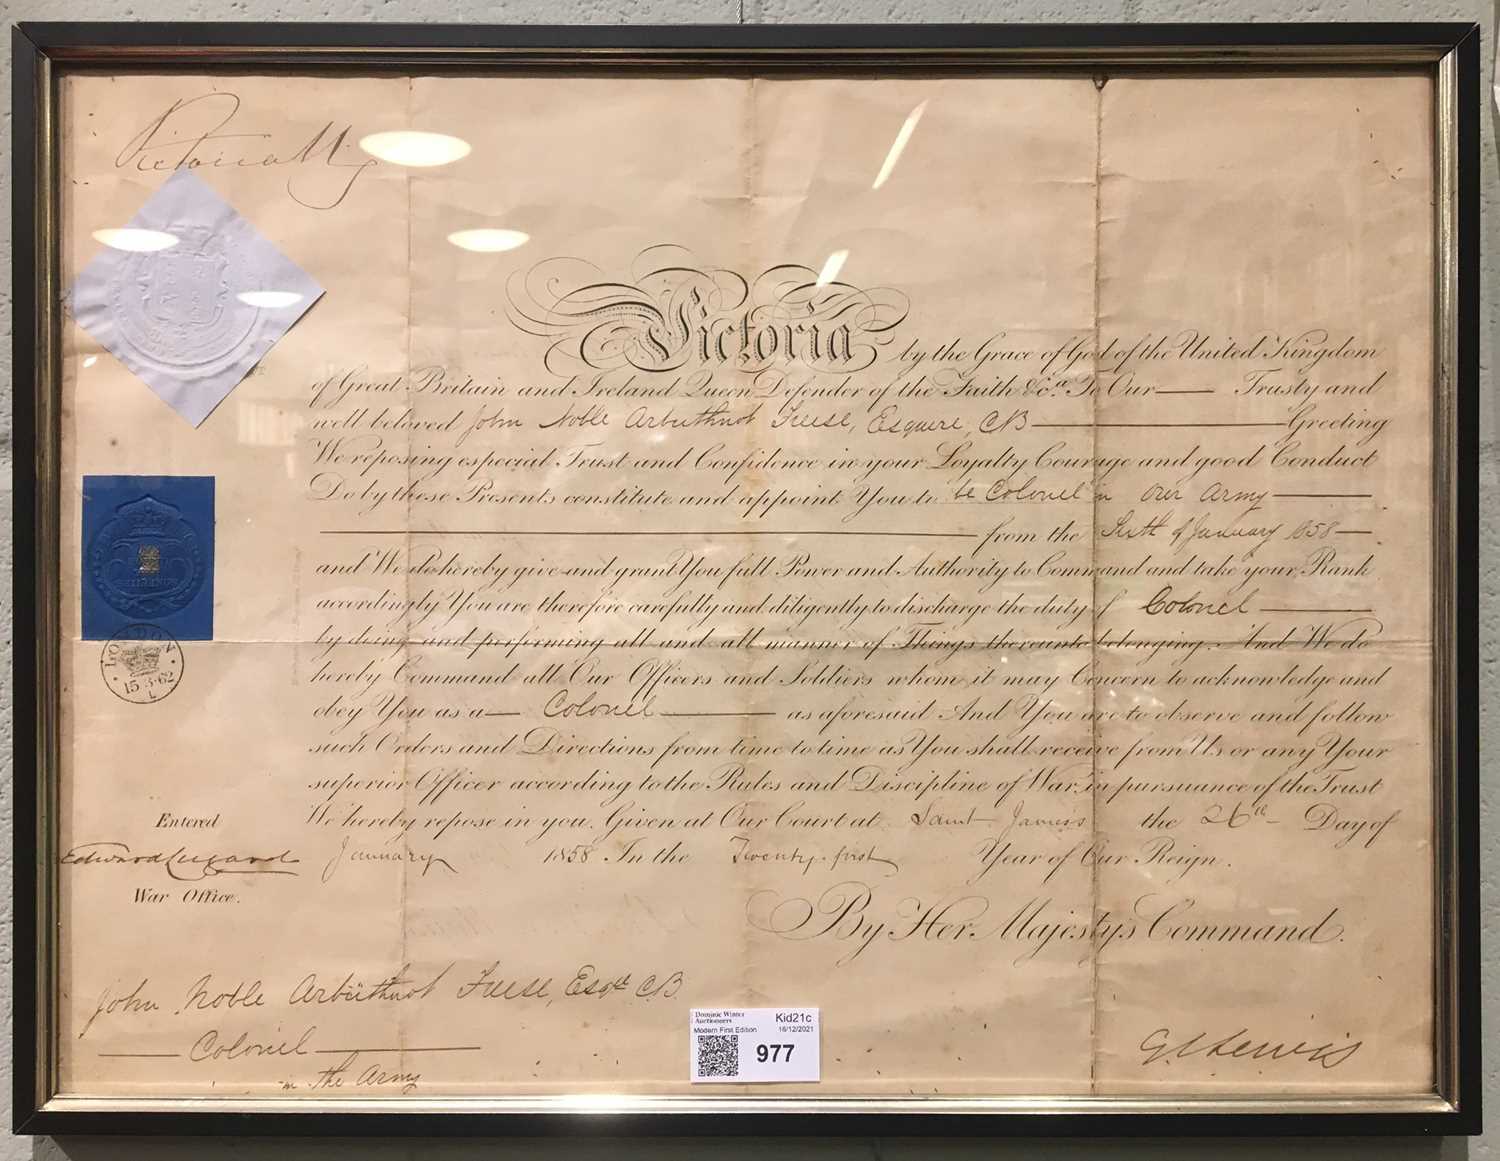 Victoria R
Victoria by the Grace of God of the United Kingdom
of Great Britain and Ireland Queen Defender of the Faith &c.a To Our — Trusty and
well beloved John Noble Arbuthnot Freese, Esquire, CB — Greeting
We reposing especial Trust and Confidence in your Loyalty Courage and good Conduct
Do by these Presents constitute and appoint You to be Colonel in Our Army —
— from the Sixth of January 1858 —
and We do hereby give and grant You full Power and Authority to Command and take your Rank
accordingly You are therefore carefully and diligently to discharge the duty of Colonel —
by doing and performing all and all manner of Things thereunto belonging. And We do
hereby Command all Our Officers and Soldiers whom it may Concern to acknowledge and
obey You as a — Colonel — as aforesaid And You are to observe and follow
such Orders and Directions from time to time as You shall receive from Us or any Your
superior Officer according to the Rules and Discipline of War, in pursuance of the Trust
We hereby repose in you. Given at Our Court at Saint James's the 26th Day of
January 1858. In the Twenty-first Year of Our Reign.
By Her Majesty's Command.
SHILLINGS
LONDON
15·3·62
L
Entered
Edward Lugard
War Office.
John Noble Arbuthnot Freese, Esqre CB
— Colonel —
in the Army
Dominic Winter
Auctioneers
Kid21c
Modern First Edition
16/12/2021
977